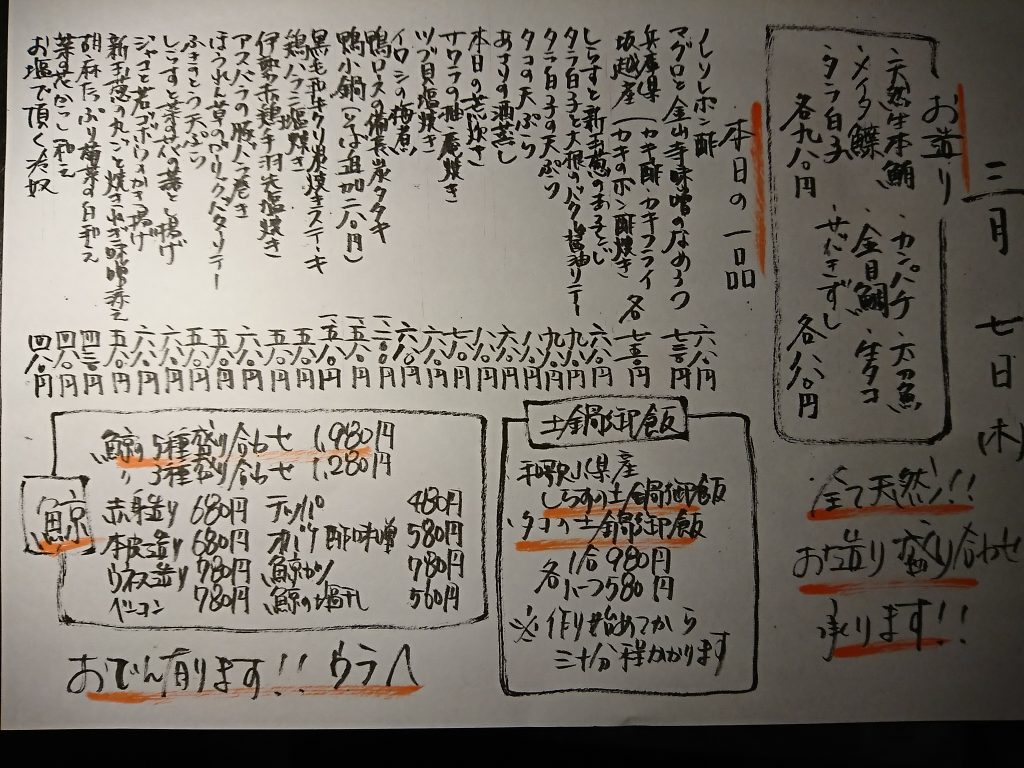 三月七日(木)
お造り
・天然生本鮪
・メイタ鰈
・タラ白子
各九八〇円
・カンパチ ・太刀魚
・金目鯛 ・生タコ
各八八〇円
全て天然!!
お造り盛り合わせ
承ります!!
本日の一品
ノレソレポン酢 六八〇円
マグロと金山寺味噌のなめろう 七三〇円
兵庫県 坂越産(カキ酢・カキフライ カキのポン酢焼き 各七五〇円
しらすと新玉葱のおろし 六八〇円
タラ白子と大根のバター醤油ソテー 九八〇円
タラ白子の天ぷら 九八〇円
タコの天ぷら 八八〇円
あさりの酒蒸し 六八〇円
本日の荒炊き 八八〇円
サワラの柚庵焼き 七八〇円
ツブ貝塩焼き 六八〇円
イワシの梅煮 六八〇円
鴨ロースの備長炭タタキ
鴨小鍋(そば追加二八〇円)
黒毛和牛クリ炭焼きステーキ
鶏ハラミ塩焼き 五八〇円
伊勢赤鶏手羽先塩焼き 五八〇円
アスパラの豚バラ巻き 六八〇円
ほうれん草のガーリックバターソテー 五八〇円
ふきのとう天ぷら 五八〇円
しらすと菜の花の落し揚げ 六八〇円
ジャコと若ゴボウのかき揚げ 六八〇円
新玉葱の丸ごと焼きねぎ味噌添え 五八〇円
胡麻たっぷり 白和え 四三〇円
菜の花からし和え 四八〇円
お塩で頂く冷奴 四八〇円
土鍋御飯
和歌山県産
しらすの土鍋御飯
タコの土鍋御飯
各 1合 980円
1人つ 580円
※作り始めてから
三十分程かかります
鯨
鯨の5種盛り合わせ 1,980円
〃 3種盛り合わせ 1,280円
赤身造り 680円 テッパ 480円
本皮造り 680円 オバケ酢味噌 580円
ウネス造り 780円 鯨カツ 780円
ベーコン 780円 鯨の塩干し 560円
おでん有ります!! ウラへ